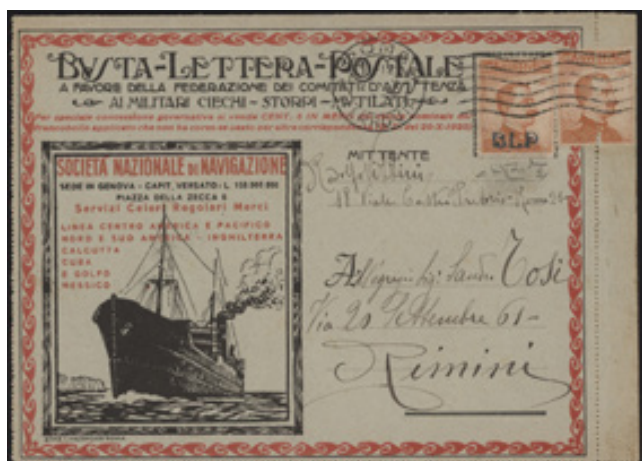 BUSTA-LETTERA-POSTALE
A FAVORE DELLA FEDERAZIONE DEI COMITATI D'ASSISTENZA
AI MILITARI CIECHI - STORPI - MUTILATI
Per speciale concessione governativa si vende CENT. 5 IN MENO
ROMA
B.L.P
SOCIETÀ NAZIONALE DI NAVIGAZIONE
SEDE IN GENOVA - CAPIT. VERSATO: L. 150.000.000
PIAZZA DELLA ZECCA 6
Servizi Celeri Regolari Merci
LINEA CENTRO AMERICA E PACIFICO
NORD E SUD AMERICA - INGHILTERRA
CALCUTTA
CUBA
E GOLFO
MESSICO
MITTENTE
18 Viale Castro Pretorio - Roma
Sandro Tosi
Via 20 Settembre 61-
Rimini